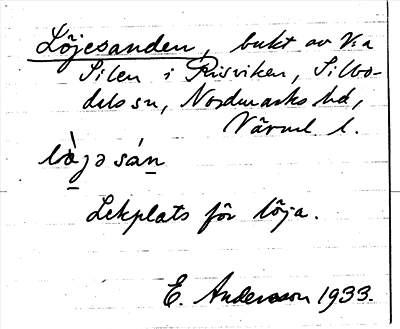 Löjesanden, bukt av V:a
Silen i Risviken, Silbo-
dals sn, Nordmarks hd,
Värml. l.
lὰjəsán
Lekplats för löja.
E. Andersson 1933.